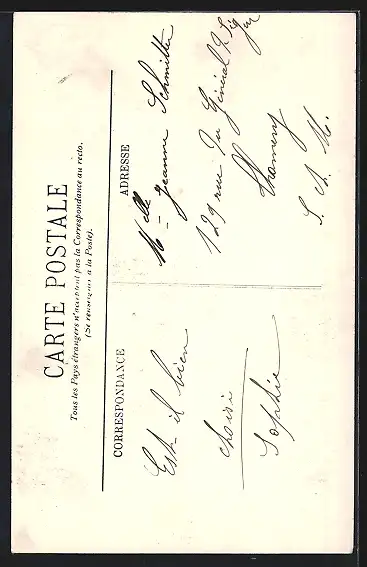 CARTE POSTALE
Tous les Pays étrangers n'acceptent pas la Correspondance au recto.
(Se renseigner à la Poste).
CORRESPONDANCE
Est-il bien
choisi
Sophie
ADRESSE
Melle Jeanne Schmitter
129 rue du Général
Thomery
S. et M.